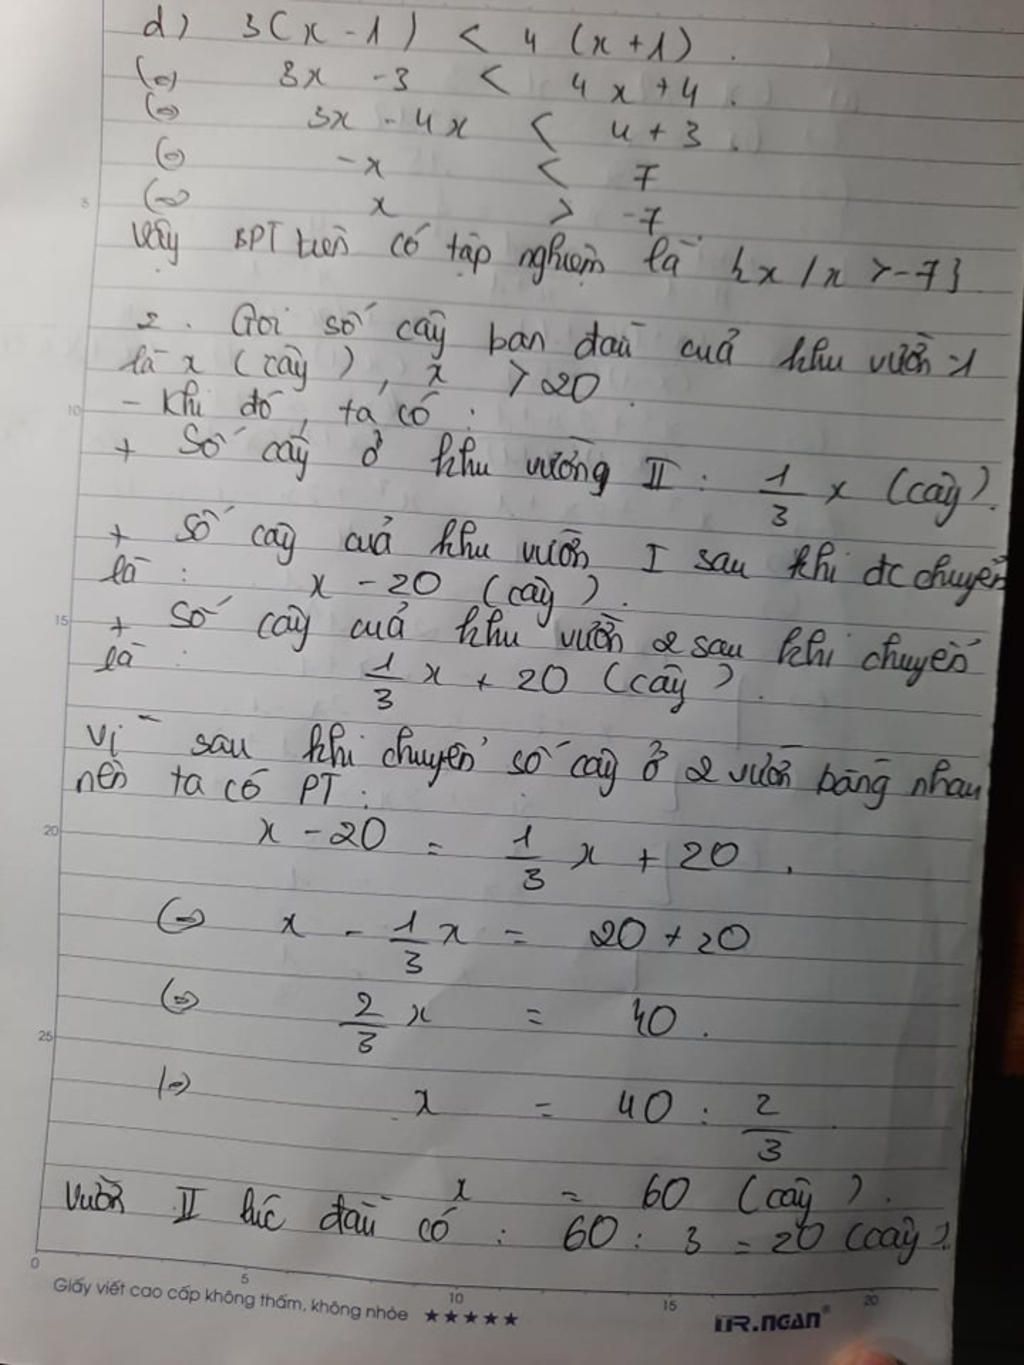 d) 3(x - 1) < 4 (x+1).
(=) 3x - 3 < 4x + 4.
(=) 3x - 4x < 4 + 3.
(=) -x < 7
5 (=) x > -7.
Vậy BPT trên có tập nghiệm là {x / x > -7}
2. Gọi số cây ban đầu cuả khu vườn 1
là x (cây), x > 20.
10 - Khi đó, ta có :
+ Số cây ở khu vường II : 1/3 x (cây).
+ Số cây cuả khu vườn I sau khi đc chuyển
là : x - 20 (cây).
15 + Số cây cuả khu vườn 2 sau khi chuyển
là : 1/3 x + 20 (cây).
Vì sau khi chuyển số cây ở 2 vườn bằng nhau
nên ta có PT :
20 x - 20 = 1/3 x + 20.
(=) x - 1/3 x = 20 + 20
(=) 2/3 x = 40.
25
(=) x = 40 : 2/3
x = 60 (cây).
Vườn II lúc đầu có : 60 : 3 = 20 (cây).
0 5 10 15 20
Giấy viết cao cấp không thấm, không nhòe ★★★★★
MR.NGAN®